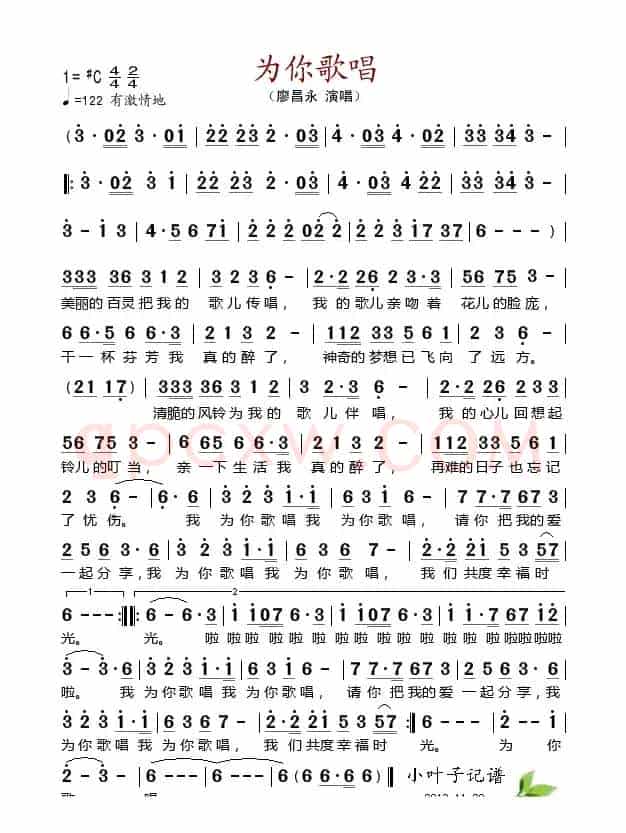 为你歌唱
1=#C 4/4 2/4
（廖昌永 演唱）
♩=122 有激情地
( 3· 02 3· 01 | 22 23 3 - | 4· 03 4· 03 | 33 34 3 - |
‖: 3· 02 3 1 | 22 23 3 - | 4· 03 4 22 | 33 34 3 - |
3 - 1 3 | 4·5 6 71 | 2 2 2 02 2 | 22 23 17 37 | 6 - - - )
333 36 3 1 2 | 3 2·3 6 - | 2·2 26 2·3 | 56 75 3 - |
美丽的百灵把我的 歌儿传唱， 我的歌儿亲吻着 花儿的脸庞，
6 6·5 6 6·3 | 2 1 3 - | 112 33 5 6 1 | 2 3 6 - |
干一杯芬芳我 真的醉了， 神奇的梦想已飞向了远方。
(21 17) | 333 36 3 1 2 | 3 2·3 6 - | 2·2 26 2 3 3 |
清脆的风铃为我的 歌儿伴唱， 我的心儿回想起
56 75 3 - | 6 65 6 6·3 | 2 1 3 - | 112 33 5 61 |
铃儿的叮当， 亲一下生活我 真的醉了， 再难的日子也忘记
2 3 6 - | 6 - 3·6 | 3 2 3 1·1 | 6 1 6 - | 7 7·7 67 3 |
了忧伤。 我 为你歌唱我 为你歌唱， 请你把我的爱
2 5 6 3·6 | 3 2 3 1·1 | 6 1 6 - | 2·2 21 5 3 57 |
一起分享，我 为你歌唱我 为你歌唱， 我们共度幸福时
1 2
6 - - - :‖: 6 - 6·3 | 1 107 6·3 | 1 107 6·3 | 107 63 1012 |
光。 光。 啦 啦啦啦啦 啦 啦啦啦啦 啦 啦啦啦啦啦啦啦啦
3 - 3·6 | 3 2 3 1·1 | 6 1 6 - | 7 7·7 67 3 | 2 5 6 3·6 |
啦。 我 为你歌唱我 为你歌唱， 请你把我的爱一起分享，我
3 2 3 1·1 | 6 1 6 - | 2·2 21 5 3 57 | 6 - - - :‖ 6 - 3 1 |
为你歌唱我 为你歌唱， 我们共度幸福时 光。 为 你
2 - 3 - | 6 - - - | 6 - - - (6·6 | 6 6·6 6) ‖
小叶子记谱